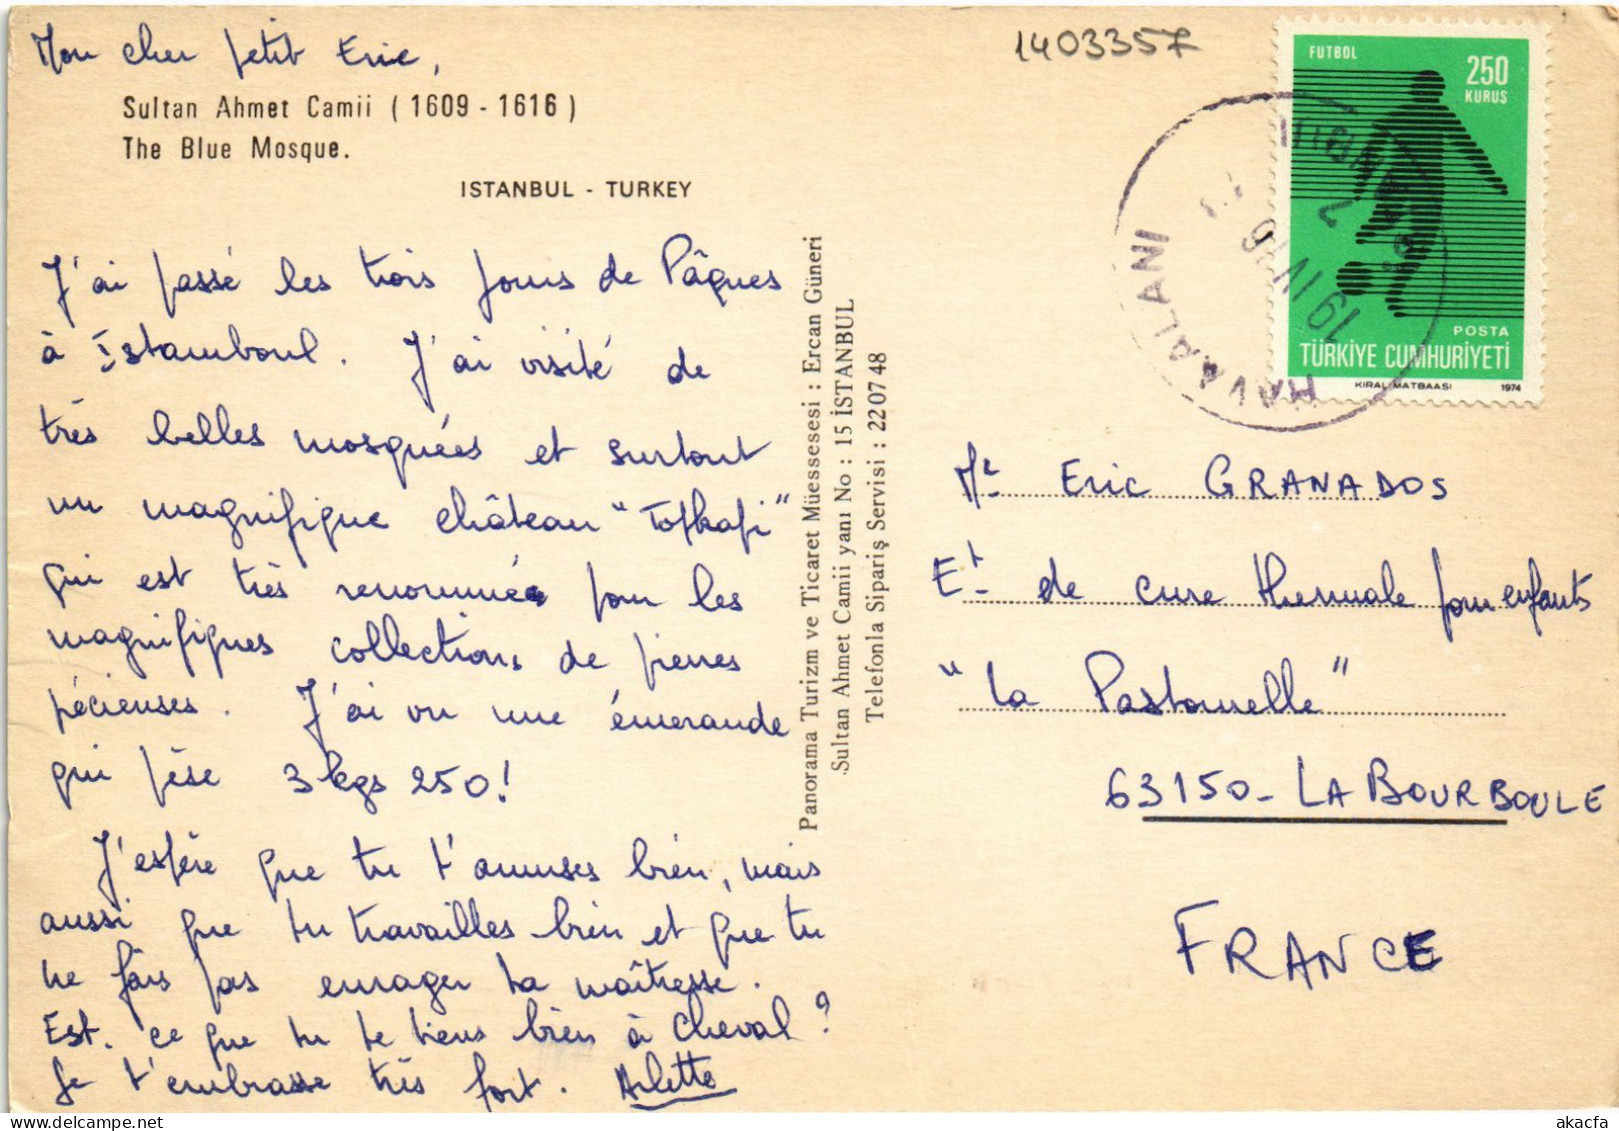 Mon cher petit Eric,
Sultan Ahmet Camii ( 1609 - 1616 )
The Blue Mosque.
ISTANBUL - TURKEY
J'ai passé les trois jours de Pâques
à Istamboul. J'ai visité de
très belles mosquées et surtout
un magnifique château "Topkapi"
qui est très renommée pour les
magnifiques collections de pierres
pécieuses. J'ai vu une émeraude
qui pèse 3 kgs 250!
J'espère que tu t'amuses bien, mais
aussi que tu travailles bien et que tu
ne fais pas enrager ta maîtresse.
Est-ce que tu te tiens bien à cheval ?
Je t'embrasse très fort. Arlette
Panorama Turizm ve Ticaret Müessesesi : Ercan Güneri
Sultan Ahmet Camii yanı No : 15 İSTANBUL
Telefonla Sipariş Servisi : 22 07 48
1403357
FUTBOL
250
KURUŞ
POSTA
TÜRKİYE CUMHURİYETİ
KIRAL MATBAASI 1974
HAVAALANI
19 IV 6
Mr Eric GRANADOS
Et de cure thermale pour enfants
"La Pastourelle"
63150 - LA BOURBOULE
FRANCE
akacfa